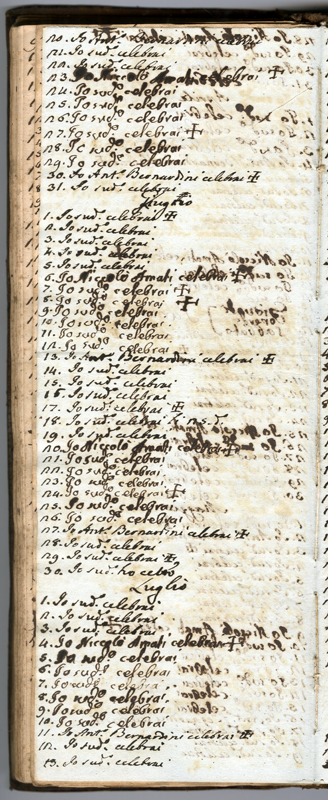 20. Io Ant.º Bernardini celebrai
21. Io sud.º celebrai
22. Io sud.º celebrai
23. Io Niccolò Amati celebrai ✠
24. Io sud.º celebrai
25. Io sud.º celebrai
26. Io sud.º celebrai
27. Io sud.º celebrai ✠
28. Io sud.º celebrai
29. Io sud.º celebrai
30. Io Ant.º Bernardini celebrai ✠
31. Io sud.º celebrai
Luglio
1. Io sud.º celebrai ✠
2. Io sud.º celebrai
3. Io sud.º celebrai
4. Io sud.º celebrai
5. Io sud.º celebrai
6. Io Niccolò Amati celebrai ✠
7. Io sud.º celebrai ✠
8. Io sud.º celebrai ✠
9. Io sud.º celebrai
10. Io sud.º celebrai
11. Io sud.º celebrai
12. Io sud.º celebrai
13. Io Ant.º Bernardini celebrai ✠
14. Io sud.º celebrai
15. Io sud.º celebrai
16. Io sud.º celebrai
17. Io sud.º celebrai ✠
18. Io sud.º celebrai
19. Io sud.º celebrai
20. Io Niccolò Amati celebrai ✠
21. Io sud.º celebrai
22. Io sud.º celebrai
23. Io sud.º celebrai
24. Io sud.º celebrai ✠
25. Io sud.º celebrai
26. Io sud.º celebrai
27. Io Ant.º Bernardini celebrai ✠
28. Io sud.º celebrai
29. Io sud.º celebrai ✠
30. Io sud.º ho celbro
Luglio
1. Io sud.º celebrai
2. Io sud.º celebrai
3. Io sud.º celebrai
4. Io Niccolò Amati celebrai ✠
5. Io sud.º celebrai
6. Io sud.º celebrai
7. Io sud.º celebrai
8. Io sud.º celebrai
9. Io sud.º celebrai
10. Io sud.º celebrai
11. Io Ant.º Bernardini celebrai ✠
12. Io sud.º celebrai
13. Io sud.º celebrai